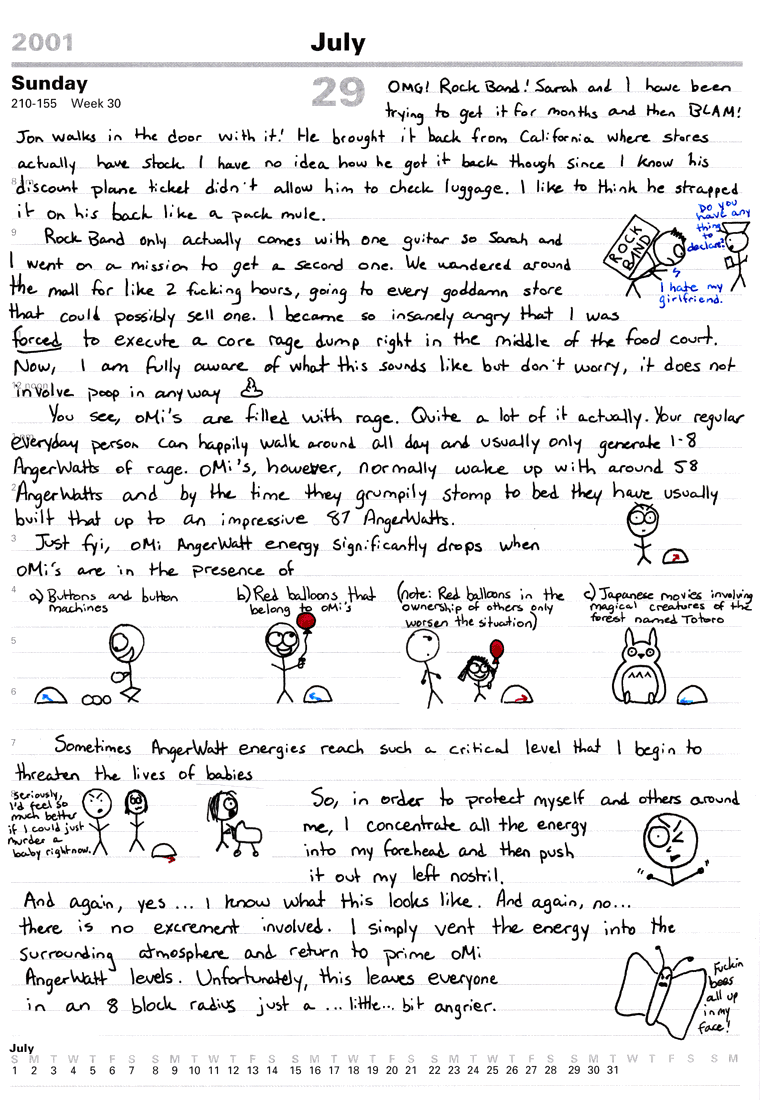 2001 July
Sunday 29
210-155 Week 30
OMG! Rock Band! Sarah and I have been
trying to get it for months and then BLAM!
Jon walks in the door with it! He brought it back from California where stores
actually have stock. I have no idea how he got it back though since I know his
discount plane ticket didn't allow him to check luggage. I like to think he strapped
it on his back like a pack mule.
ROCK
BAND
Do you
have any
thing
to
declare?
I hate my
girlfriend.
9
Rock Band only actually comes with one guitar so Sarah and
I went on a mission to get a second one. We wandered around
the mall for like 2 fucking hours, going to every goddamn store
that could possibly sell one. I became so insanely angry that I was
forced to execute a core rage dump right in the middle of the food court.
Now, I am fully aware of what this sounds like but don't worry, it does not
involve poop in any way
You see, oMi's are filled with rage. Quite a lot of it actually. Your regular
everyday person can happily walk around all day and usually only generate 1-8
AngerWatts of rage. oMi's, however, normally wake up with around 58
2
AngerWatts and by the time they grumpily stomp to bed they have usually
built that up to an impressive 87 AngerWatts.
3
Just fyi, oMi AngerWatt energy significantly drops when
oMi's are in the presence of
4
a) Buttons and button
machines
b) Red balloons that
belong to oMi's
(note: Red balloons in the
ownership of others only
worsen the situation)
c) Japanese movies involving
magical creatures of the
forest named Totoro
5
6
7
Sometimes AngerWatt energies reach such a critical level that I begin to
threaten the lives of babies
Seriously,
I'd feel so
much better
if I could just
murder a
baby right now.
So, in order to protect myself and others around
me, I concentrate all the energy
into my forehead and then push
it out my left nostril.
And again, yes... I know what this looks like. And again, no...
there is no excrement involved. I simply vent the energy into the
surrounding atmosphere and return to prime oMi
AngerWatt levels. Unfortunately, this leaves everyone
in an 8 block radius just a ... little... bit angrier.
Fuckin
bees
all up
in my
face!
July
S M T W T F S S M T W T F S S M T W T F S S M T W T F S S M T W T F S S M
1 2 3 4 5 6 7 8 9 10 11 12 13 14 15 16 17 18 19 20 21 22 23 24 25 26 27 28 29 30 31